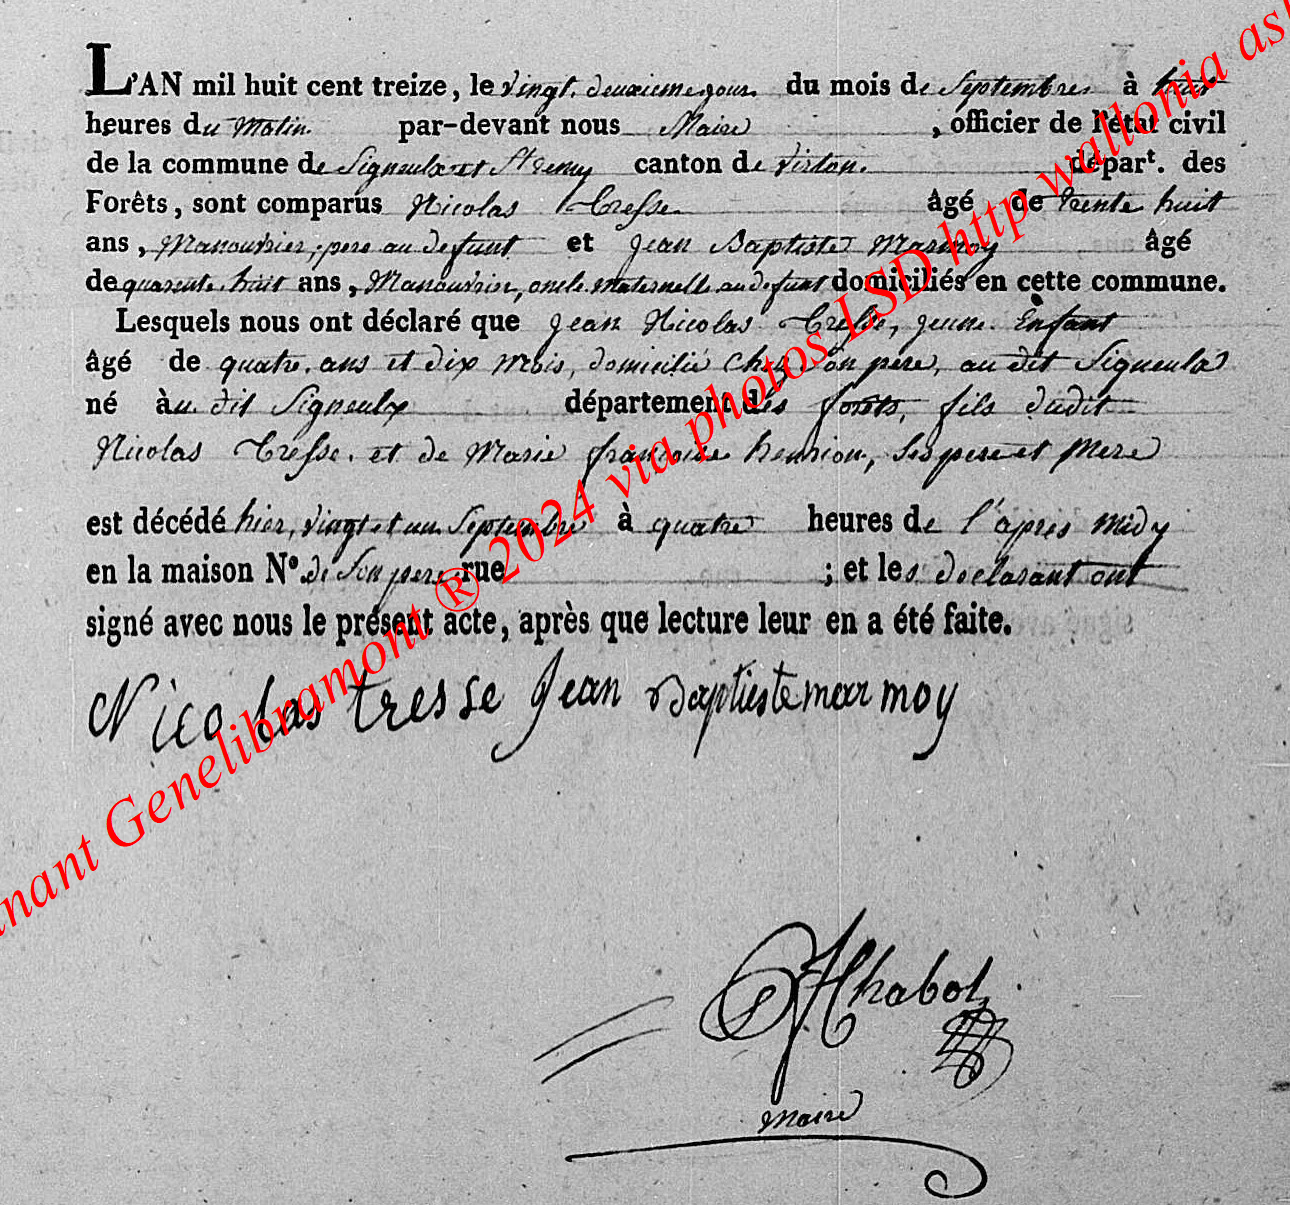 L'AN mil huit cent treize, le vingt deuxieme jour du mois de Septembre à huit
heures du Matin par-devant nous Maire, officier de l'état civil
de la commune de Signeulx et St remy canton de Virton. départ. des
Forêts, sont comparus Nicolas Tresse âgé de trente huit
ans, Manouvrier, pere au defunt et Jean Baptiste Marmoy âgé
de quarente huit ans, Manouvrier, oncle maternelle au defunt domiciliés en cette commune.
Lesquels nous ont déclaré que Jean Nicolas Tresse, jeune Enfant
âgé de quatre ans et dix Mois, domicilié chez Son pere, au dit Signeulx
né à u dit Signeulx département des forêts, fils dudit
Nicolas Tresse et de Marie francoise henrion, Ses pere et Mere
est décédé hier, vingt et un Septembre à quatre heures de l'apres Midy
en la maison N°. de Son pere rue ; et les declarant ont
signé avec nous le présent acte, après que lecture leur en a été faite.
Nicolas tresse Jean Baptiste marmoy
Chabot
Maire
nant Genelibramont ® 2024 via photos LSD http wallonia as